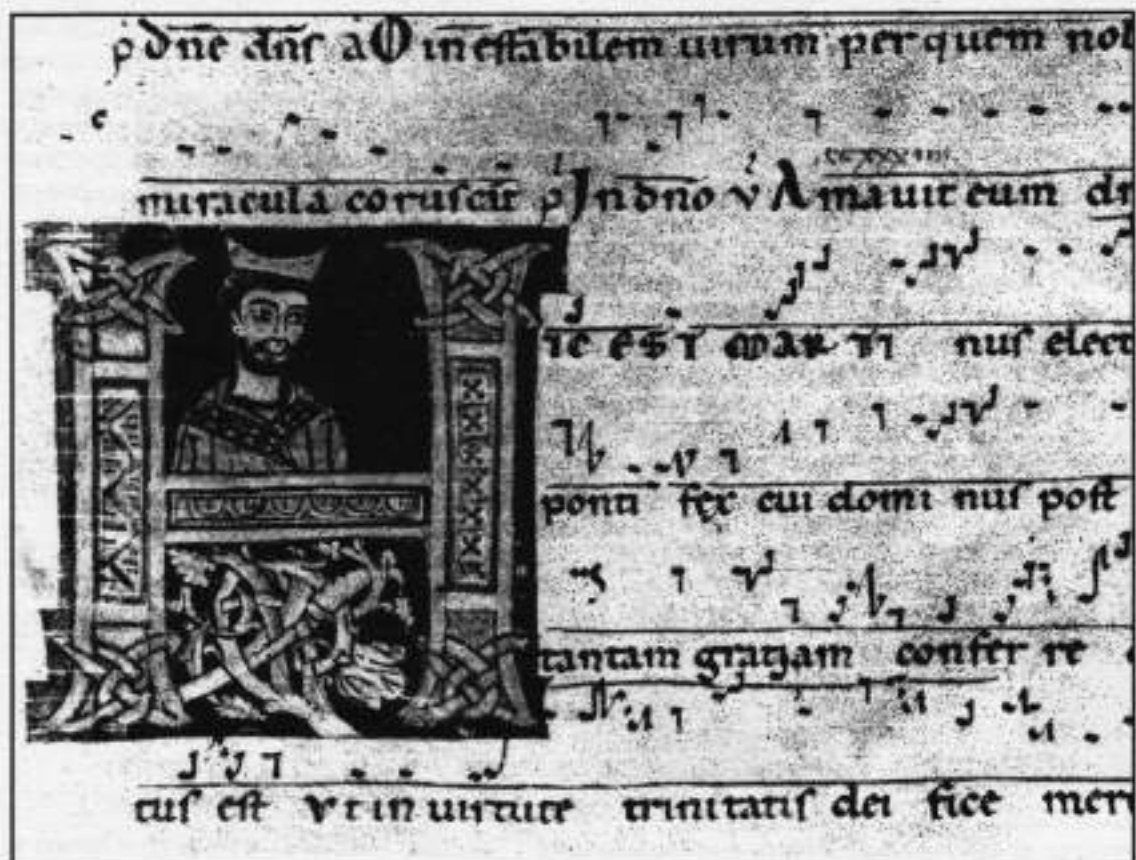 p dñe dñs a O ineffabilem uirum per quem nob
miracula coruscat p In dño v Amauit eum
ic EST MARTI nus elect
ponti fex cui domi nus post
tantam gratiam confer re
tus est Vt in uirtute trinitatis dei fice